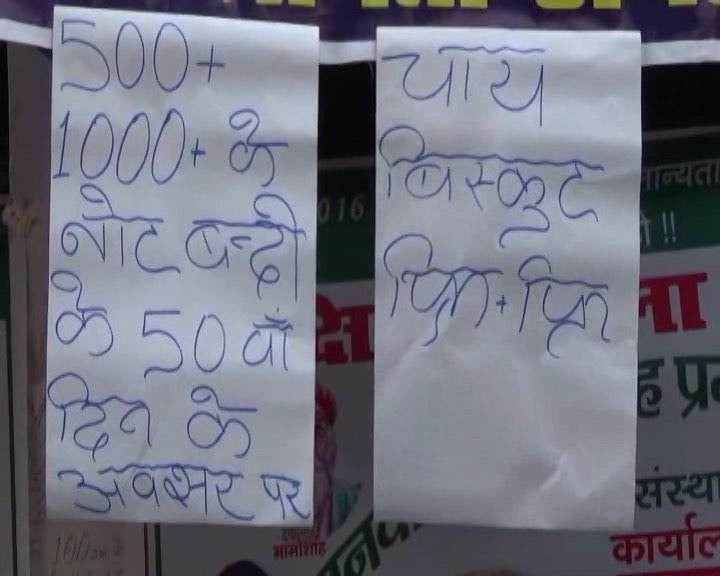 500+
1000+ के
नोट बन्दी
के 50 वाँ
दिन के
अवसर पर
चाय
बिस्कुट
फ्रि + फ्रि
016
मान्यता
!!
क्षि
ला
ह प्र
संस्था
कार्याल
भामाशाह